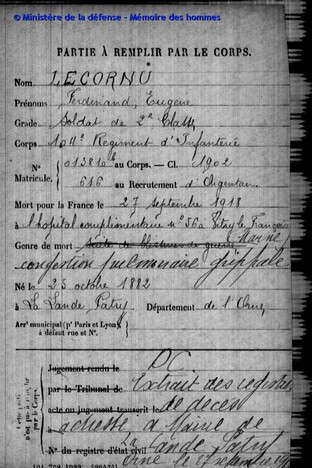 © Ministère de la défense - Mémoire des hommes
PARTIE À REMPLIR PAR LE CORPS.
Nom LECORNU
Prénoms Ferdinand, Eugène
Grade Soldat de 2e Classe
Corps 104e Régiment d'Infanterie
N° Matricule. 013810 au Corps. — Cl. 1902
616 au Recrutement d'Argentan
Mort pour la France le 27 septembre 1918
à l'hôpital complémentaire n° 56 à Vitry le François
Marne
Genre de mort Suite de blessures de guerre
congestion pulmonaire grippale
Né le 25 octobre 1882
à La Lande Patry Département de l'Orne
Arrt municipal (pr Paris et Lyon), à défaut rue et N°.
Cette partie n'est pas à remplir par le Corps.
Jugement rendu le DC
par le Tribunal de Extrait des registres
acte ou jugement transcrit le de décès
à adressé à Maire de
N° du registre d'état civil La Lande Patry
Orne le 17 septembre 19